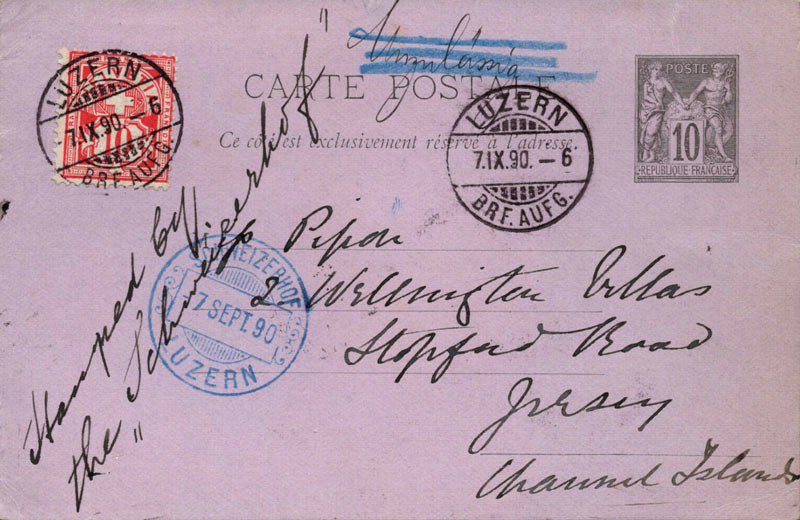 CARTE POSTALE
Ce côté est exclusivement réservé à l'adresse.
POSTE
10
REPUBLIQUE FRANÇAISE
LUZERN
7.IX.90.–6
BRF. AUFG.
10
LUZERN
7.IX.90.–6
BRF. AUFG.
Pipon
2 Wellington Villas
Stopford Road
Jersey
Channel Islands
SCHWEIZERHOF
7 SEPT. 90
LUZERN
Stamped by
the "Schweizerhof"